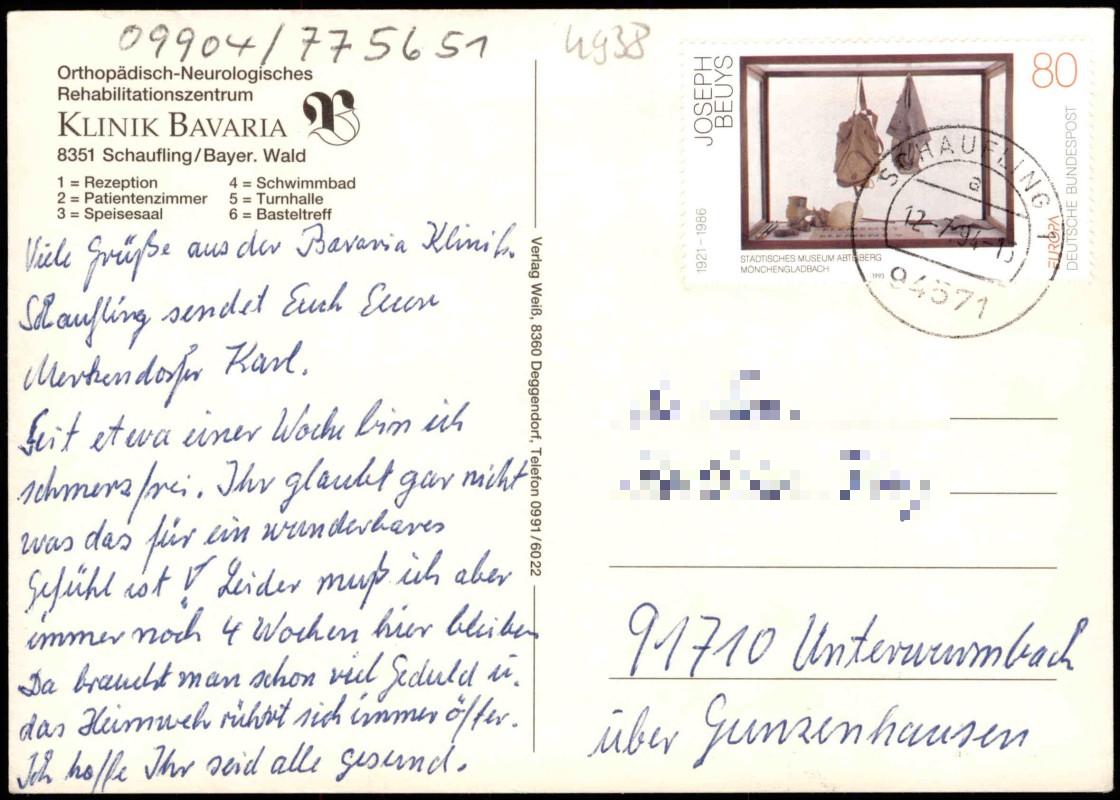 09904/775651
4938
Orthopädisch-Neurologisches
Rehabilitationszentrum
KLINIK BAVARIA
8351 Schaufling/Bayer. Wald
1 = Rezeption
2 = Patientenzimmer
3 = Speisesaal
4 = Schwimmbad
5 = Turnhalle
6 = Basteltreff
Viele Grüße aus der Bavaria Klinik.
Schaufling sendet Euch Euer
Merkendorfer Karl.
Seit etwa einer Woche bin ich
schmerzfrei. Ihr glaubt gar nicht
was das für ein wunderbares
Gefühl ist! Leider muß ich aber
immer noch 4 Wochen hier bleiben
Da braucht man schon viel Geduld u.
das Heimweh rührt sich immer öfter.
Ich hoffe Ihr seid alle gesund.
Verlag Weiß, 8360 Deggendorf, Telefon 0991/6022
JOSEPH
BEUYS
1921–1986
80
STÄDTISCHES MUSEUM ABTEIBERG
MÖNCHENGLADBACH
1993
EUROPA
DEUTSCHE BUNDESPOST
SCHAUFLING
a
12.-7.94-1
94571
91710 Unterwurmbach
über Gunzenhausen